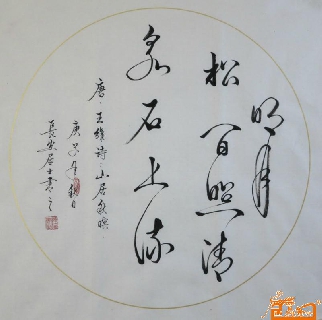 明月
松间照清
泉石上流
唐·王维诗·山居秋暝
庚子年秋日
长安居士书之